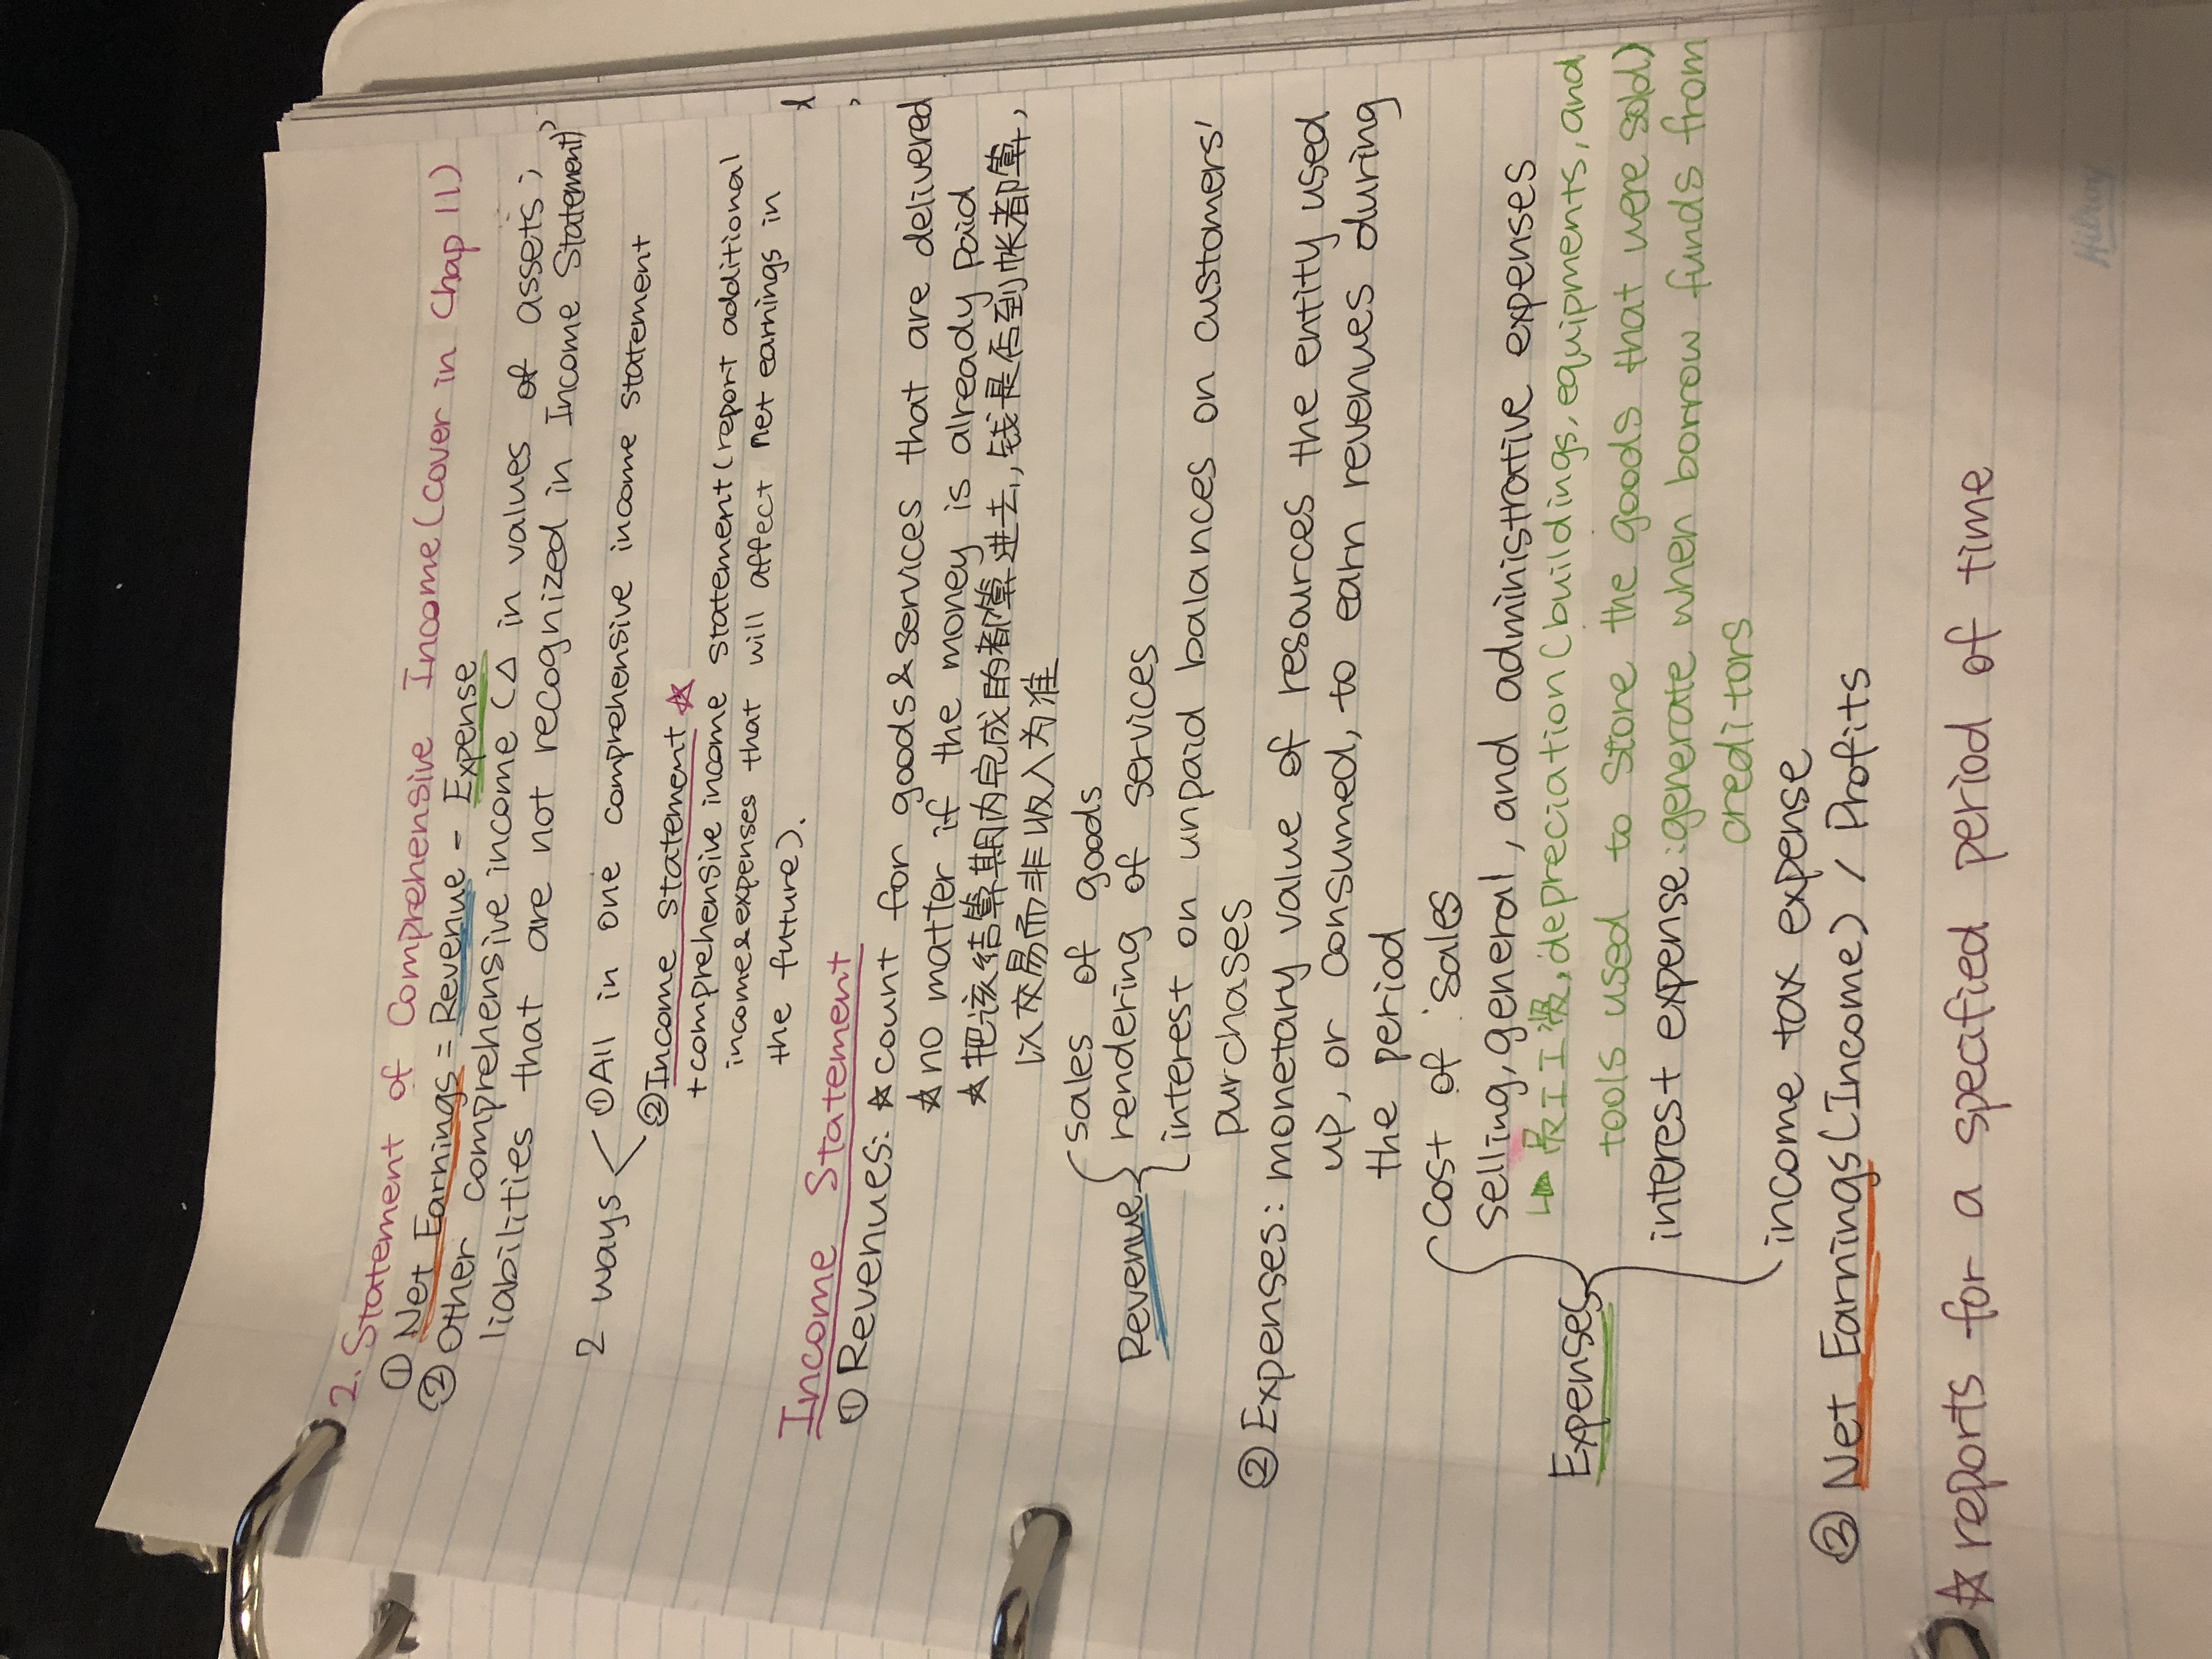 2. Statement of Comprehensive Income (Cover in Chap 11)
① Net Earnings = Revenue - Expense
② Other comprehensive income (△ in values of assets,
liabilities that are not recognized in Income Statement)
2 ways
① All in one comprehensive income statement
② Income statement ☆
+ comprehensive income statement (report additional
income & expenses that will affect net earnings in
the future).
Income Statement
① Revenues: ☆ count for goods & services that are delivered
☆ no matter if the money is already paid
☆ 把该结算期内完成的都算进去, 钱是否到帐都算,
以交易而非收入为准
Revenue
sales of goods
rendering of services
interest on unpaid balances on customers'
purchases
② Expenses: monetary value of resources the entity used
up, or consumed, to earn revenues during
the period
Expenses
Cost of sales
selling, general, and administrative expenses
↳ 员工工资, depreciation (buildings, equipments, and
tools used to store the goods that were sold)
interest expense: generate when borrow funds from
creditors
income tax expense
③ Net Earnings (Income) / Profits
☆ reports for a specified period of time